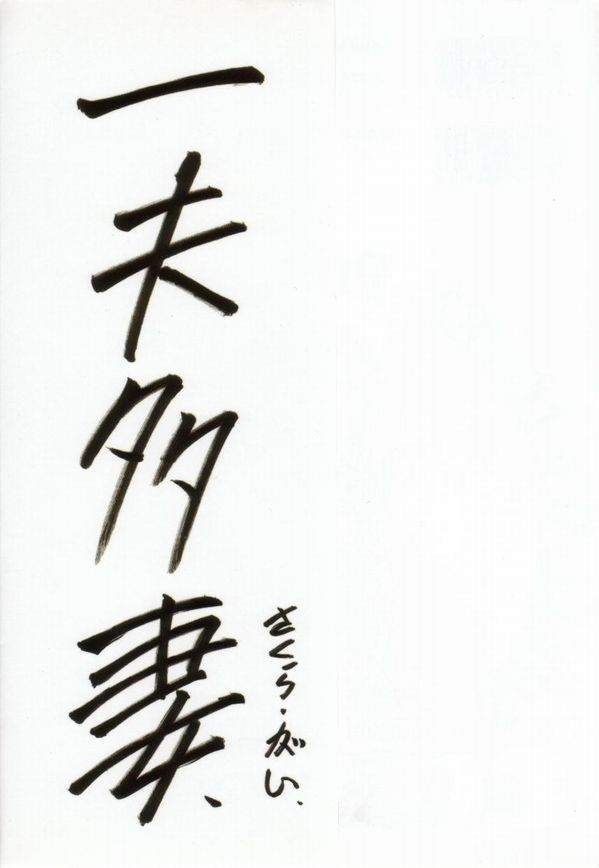 一夫多妻、
さくら・がい、